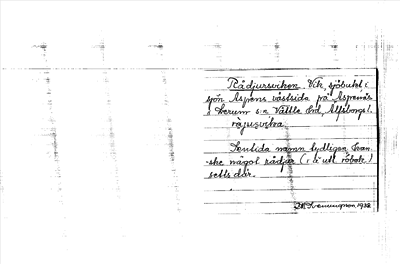 Rådjursviken. Vik, sjöbukt i
sjön Aspens västsida på Aspenäs
i Lerum s:n Vättle hd, Älfsborgs l.
rå̀jusvika.
Sentida namn tydligen, kan-
ske något rådjur (i a utt råbock)
setts där.
1932